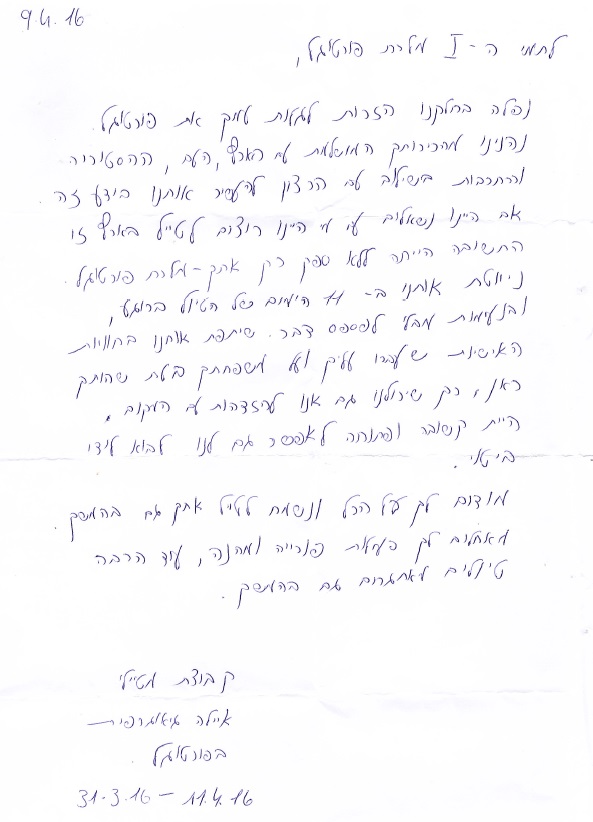 9.4.16
לתמי ה-I מלכת פורטוגל,
נפלה בחלקנו הזכות לגעת עמך את פורטוגל
נהנינו מהכירותך המושלמת עם הארץ, העם, ההסטוריה
והתרבות בשילוב עם הרצון להעשיר אותנו בידע זה
אם היינו נשאלים עי מי היינו רוצים לטייל בארץ זו
התשובה הייתה ללא ספק רק אתך-מלכת פורטוגל.
ניווטת אותנו ב-11 הימים של הטיול ברוגע,
ובנעימות מבלי לפספס דבר. שיתפת אותנו בחוויות
האישיות שעברו עליך ועל משפחתך בעת שהותך
כאן, כך שיכולנו גם אנו להזדהות עם המקום.
היית קשובה ופתוחה לאפשר גם לנו לבוא לידי
ביטוי.
מודים לך על הכל ונשמח לטייל אתך גם בהמשך.
מאחלים לך פעילות פורייה ומהנה, עוד הרבה
טיולים מאתגרים גם בהמשך.
קבוצת מטיילי
איילה גיאוגרפית
בפורטוגל.
31.3.16 – 11.4.16